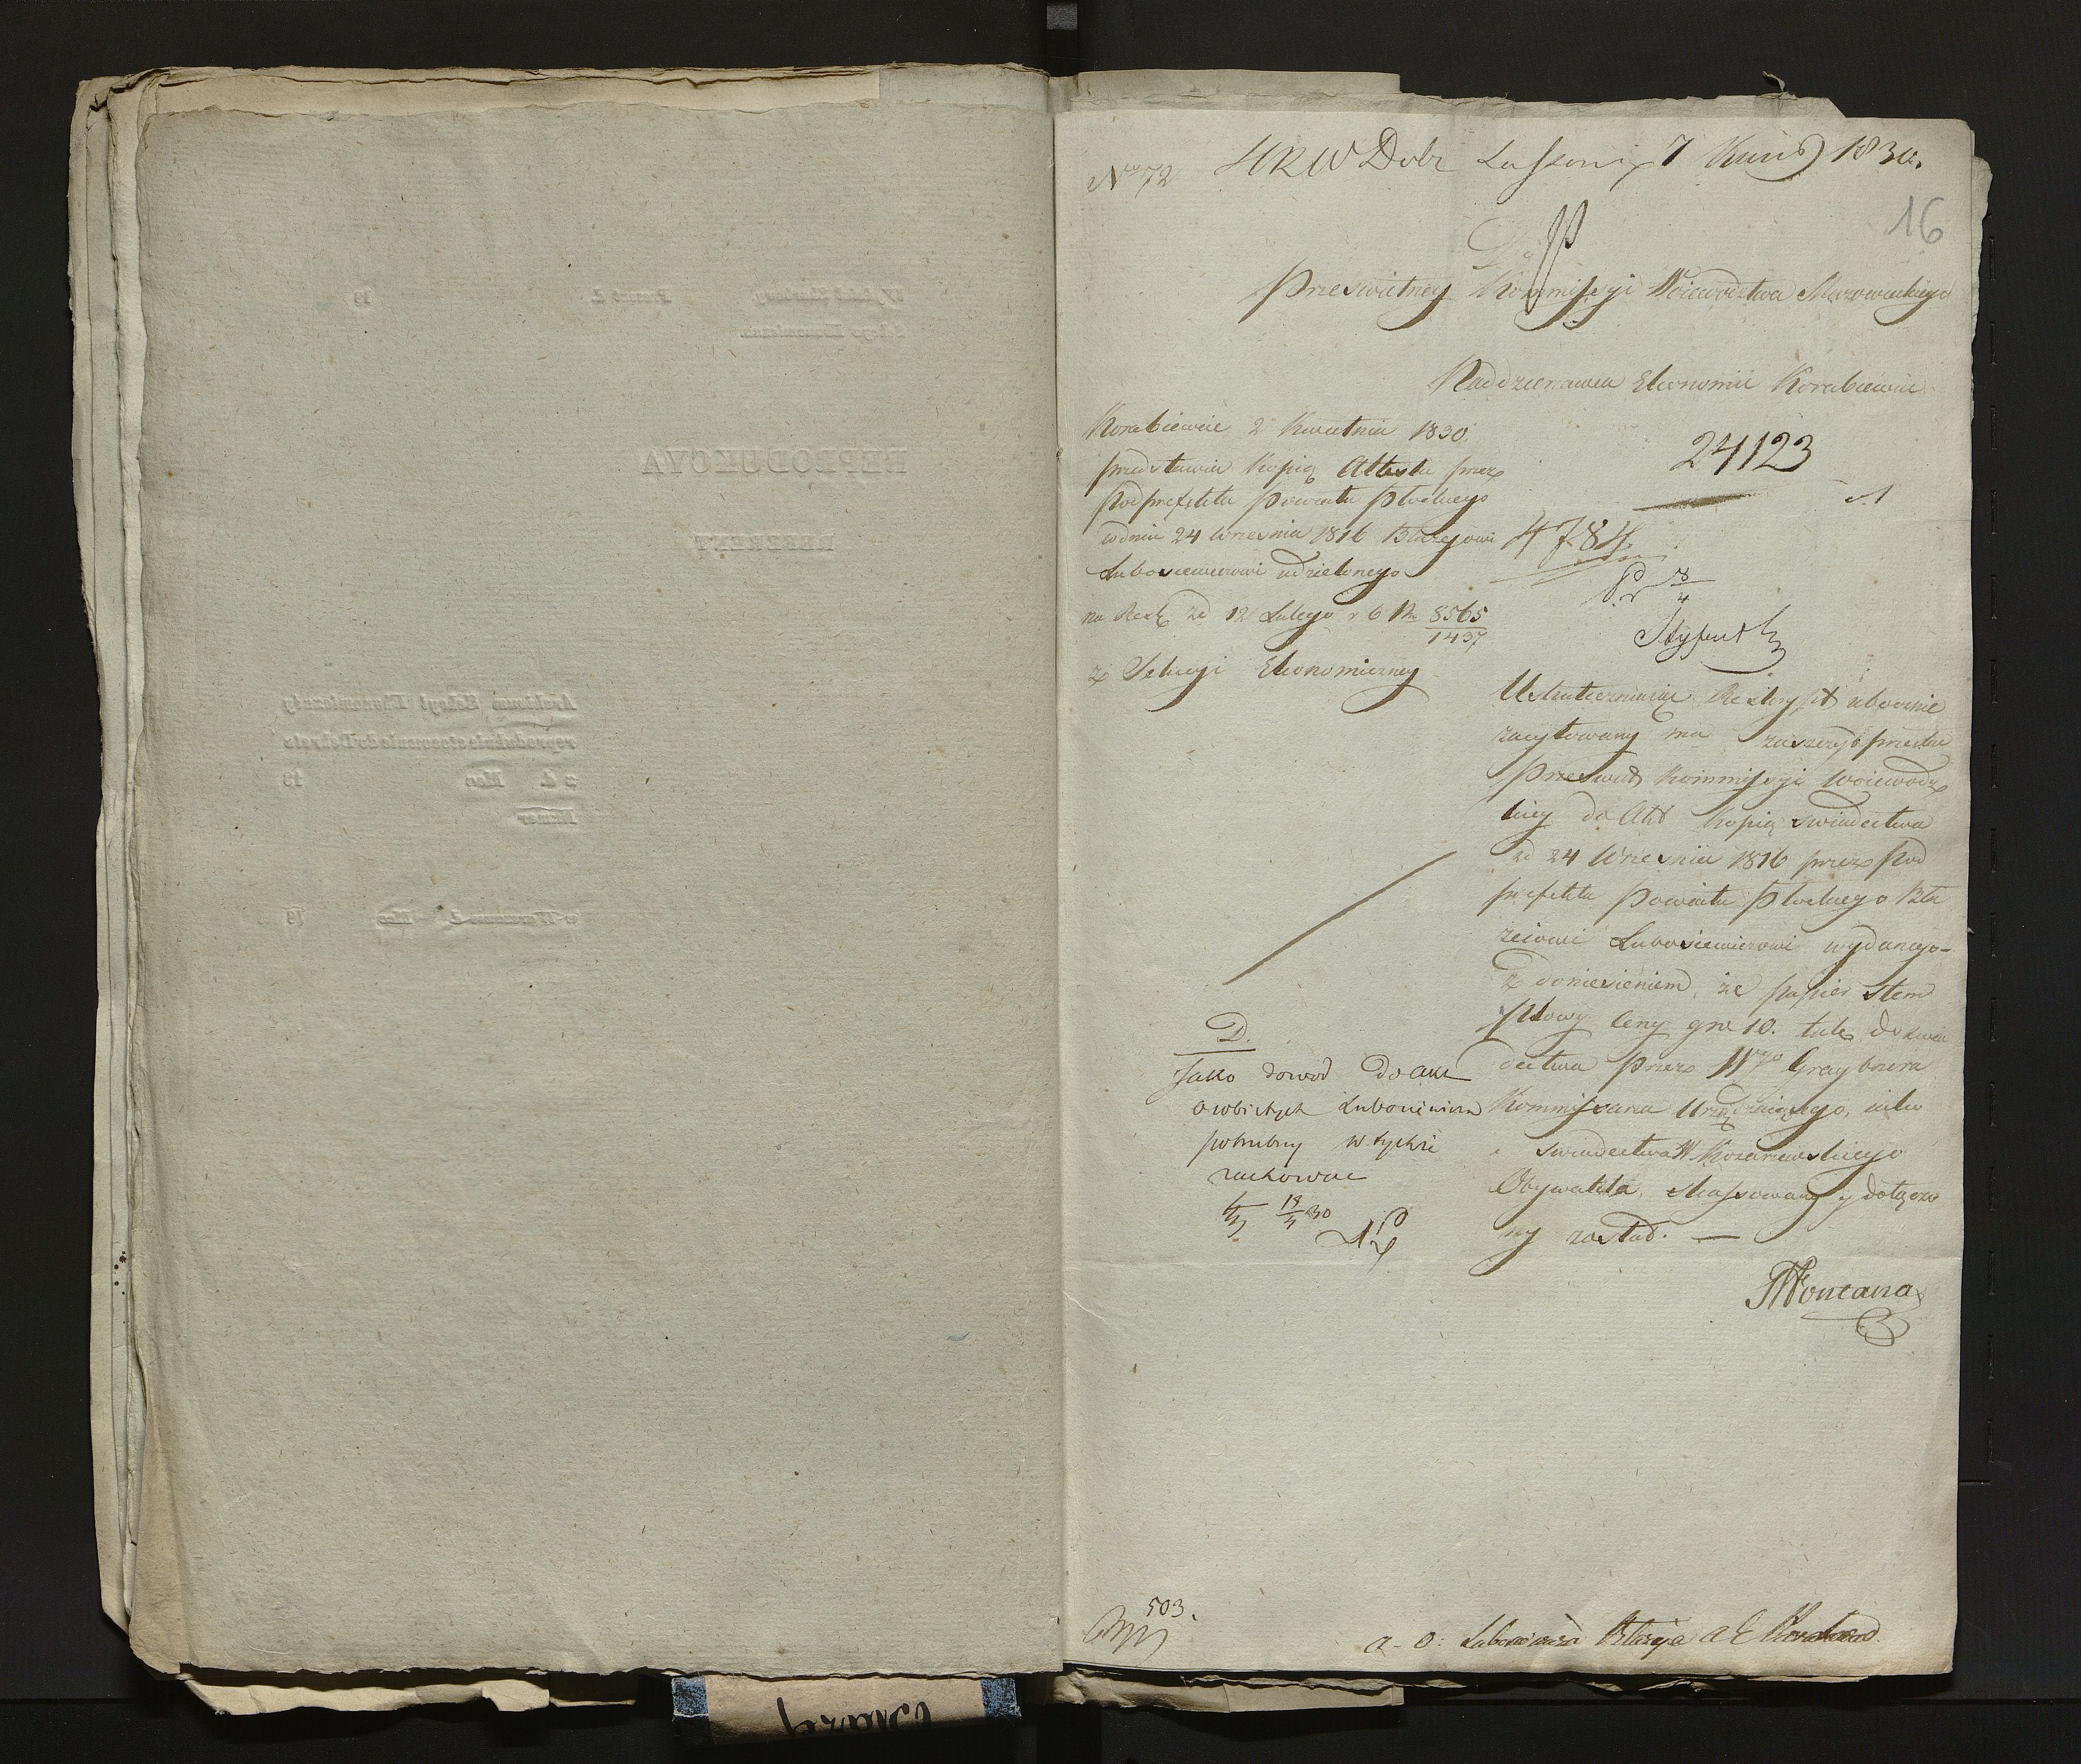 No 72
7 Kwiet 1830.
16
Do
Prześwietney Kommissyi Woiewodztwa Mazowieckiego
Naddzierzawca Ekonomii Korabiewice
Korabiewice 2 Kwietnia 1830.
przedstawia kopią Attestu przez
Podprefekta Powiatu Płockiego
w dniu 24 Września 1816 Błazejowi
Lubosiewiczowi udzielonego
na Reskt zd 12 Lutego r b N 8565
1437
z Sekcyi Ekonomiczney
24123
4784
Uskuteczniaiąc Reskrypt ubocznie
zacytowany ma zaszczyt przesłać
Przeświet Kommissyi Woiewodz
kiey do Akt kopią swiadectwa
zd 24 Września 1816 przez Pod
prefekta Powiatu Płockiego Bła
zeiowi Lubosiewiczowi wydanego-
z doniesieniem, że papier stem
plowy ceny gr 10. tak do swia
dectwa przez Wgo Graybnera
Kommissarza Urzędniczego, iako
i swiadectwa W Kozarzewskiego
Obywatela, skassowany y dołączo
ny został. —
Fontana
D.
Jako dowod do akt
osobistych Lubosiewicza
potrzebny w tychże
zachować
503.
a. o: Lubosiewicza Błażeja
REPRODUKCYA
REFERENT
Numer
Błażej